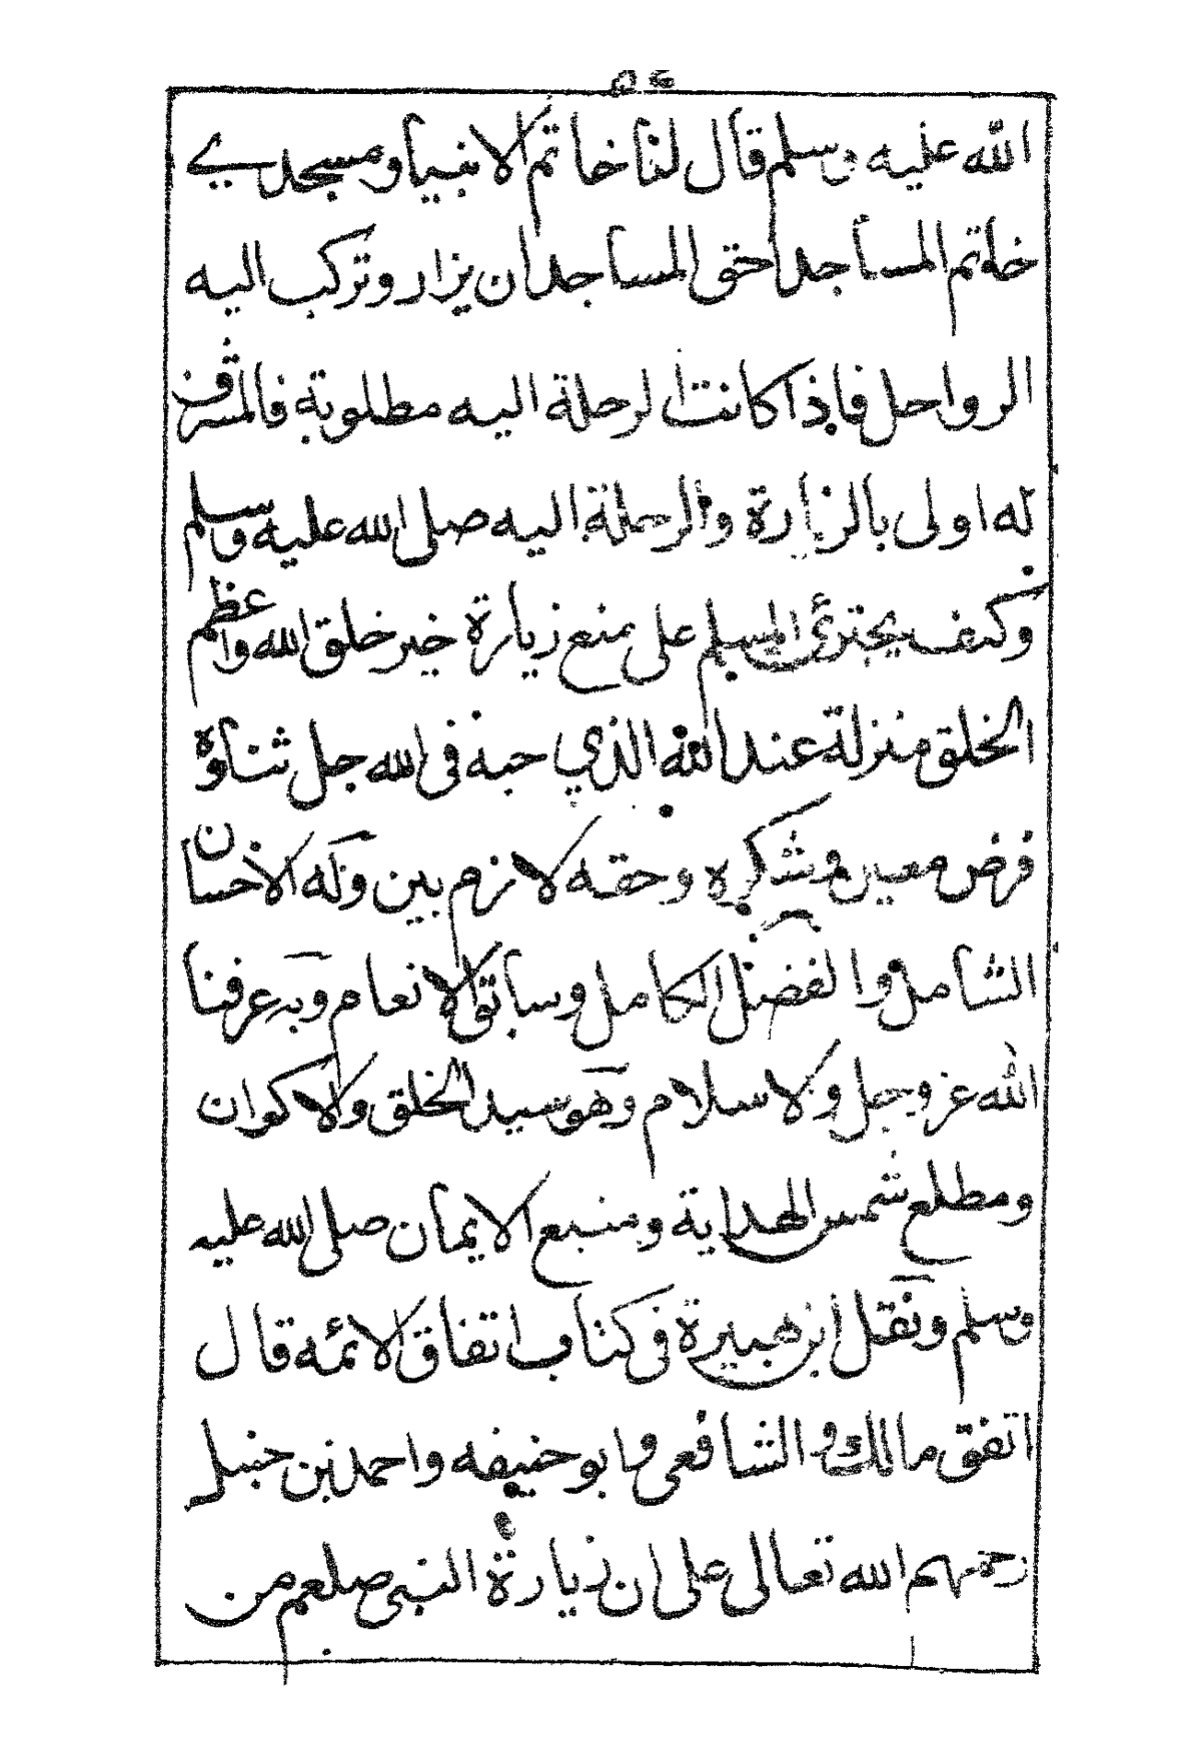 الله عليه وسلم قال لنا خاتم الانبيا ومسجدي
خاتم المساجد احق المساجد ان يزار وتركب اليه
الرواحل فاذا كانت الرحلة اليه مطلوبة فالمشرف
له اولى بالزيارة والرحلة اليه صلى الله عليه وسلم
وكيف يجترئ المسلم على منع زيارة خير خلق الله واعظم
الخلق منزلة عند الله الذي حبه في الله جل ثناوه
فرض معين وشكره وحقه لازم بين وله الاحسان
الشامل والفضل الكامل وسابق الانعام وبه عرفنا
الله عز وجل ولاسلام وهو سيد الخلق ولاكوان
ومطلع شمس الهداية ومنبع الايمان صلى الله عليه
وسلم ونقل ابن هبيرة في كتاب اتفاق الائمه قال
اتفق مالك والشافعي وابو حنيفه واحمد بن حنبل
رحمهم الله تعالى على ان زيارة النبي صلعم من